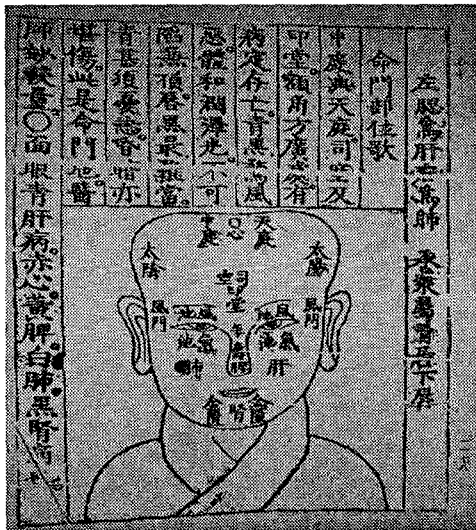 左腮為肝右為肺 承漿屬腎居下唇
命門部位歌
中庭與天庭司空及
印堂額角方廣處有
病定存亡青黑驚風
惡體和潤澤光不可
陷兼損唇黑最難當
青甚須憂急昏暗亦
堪傷此是命門地醫
師妙較量○面眼青肝病赤心黃脾白肺黑腎病也
天庭
心
中庭
太陽
太陰
司空
印堂
風門
風門
風池
風池
氣池
氣池
年壽
肝
肺
腎